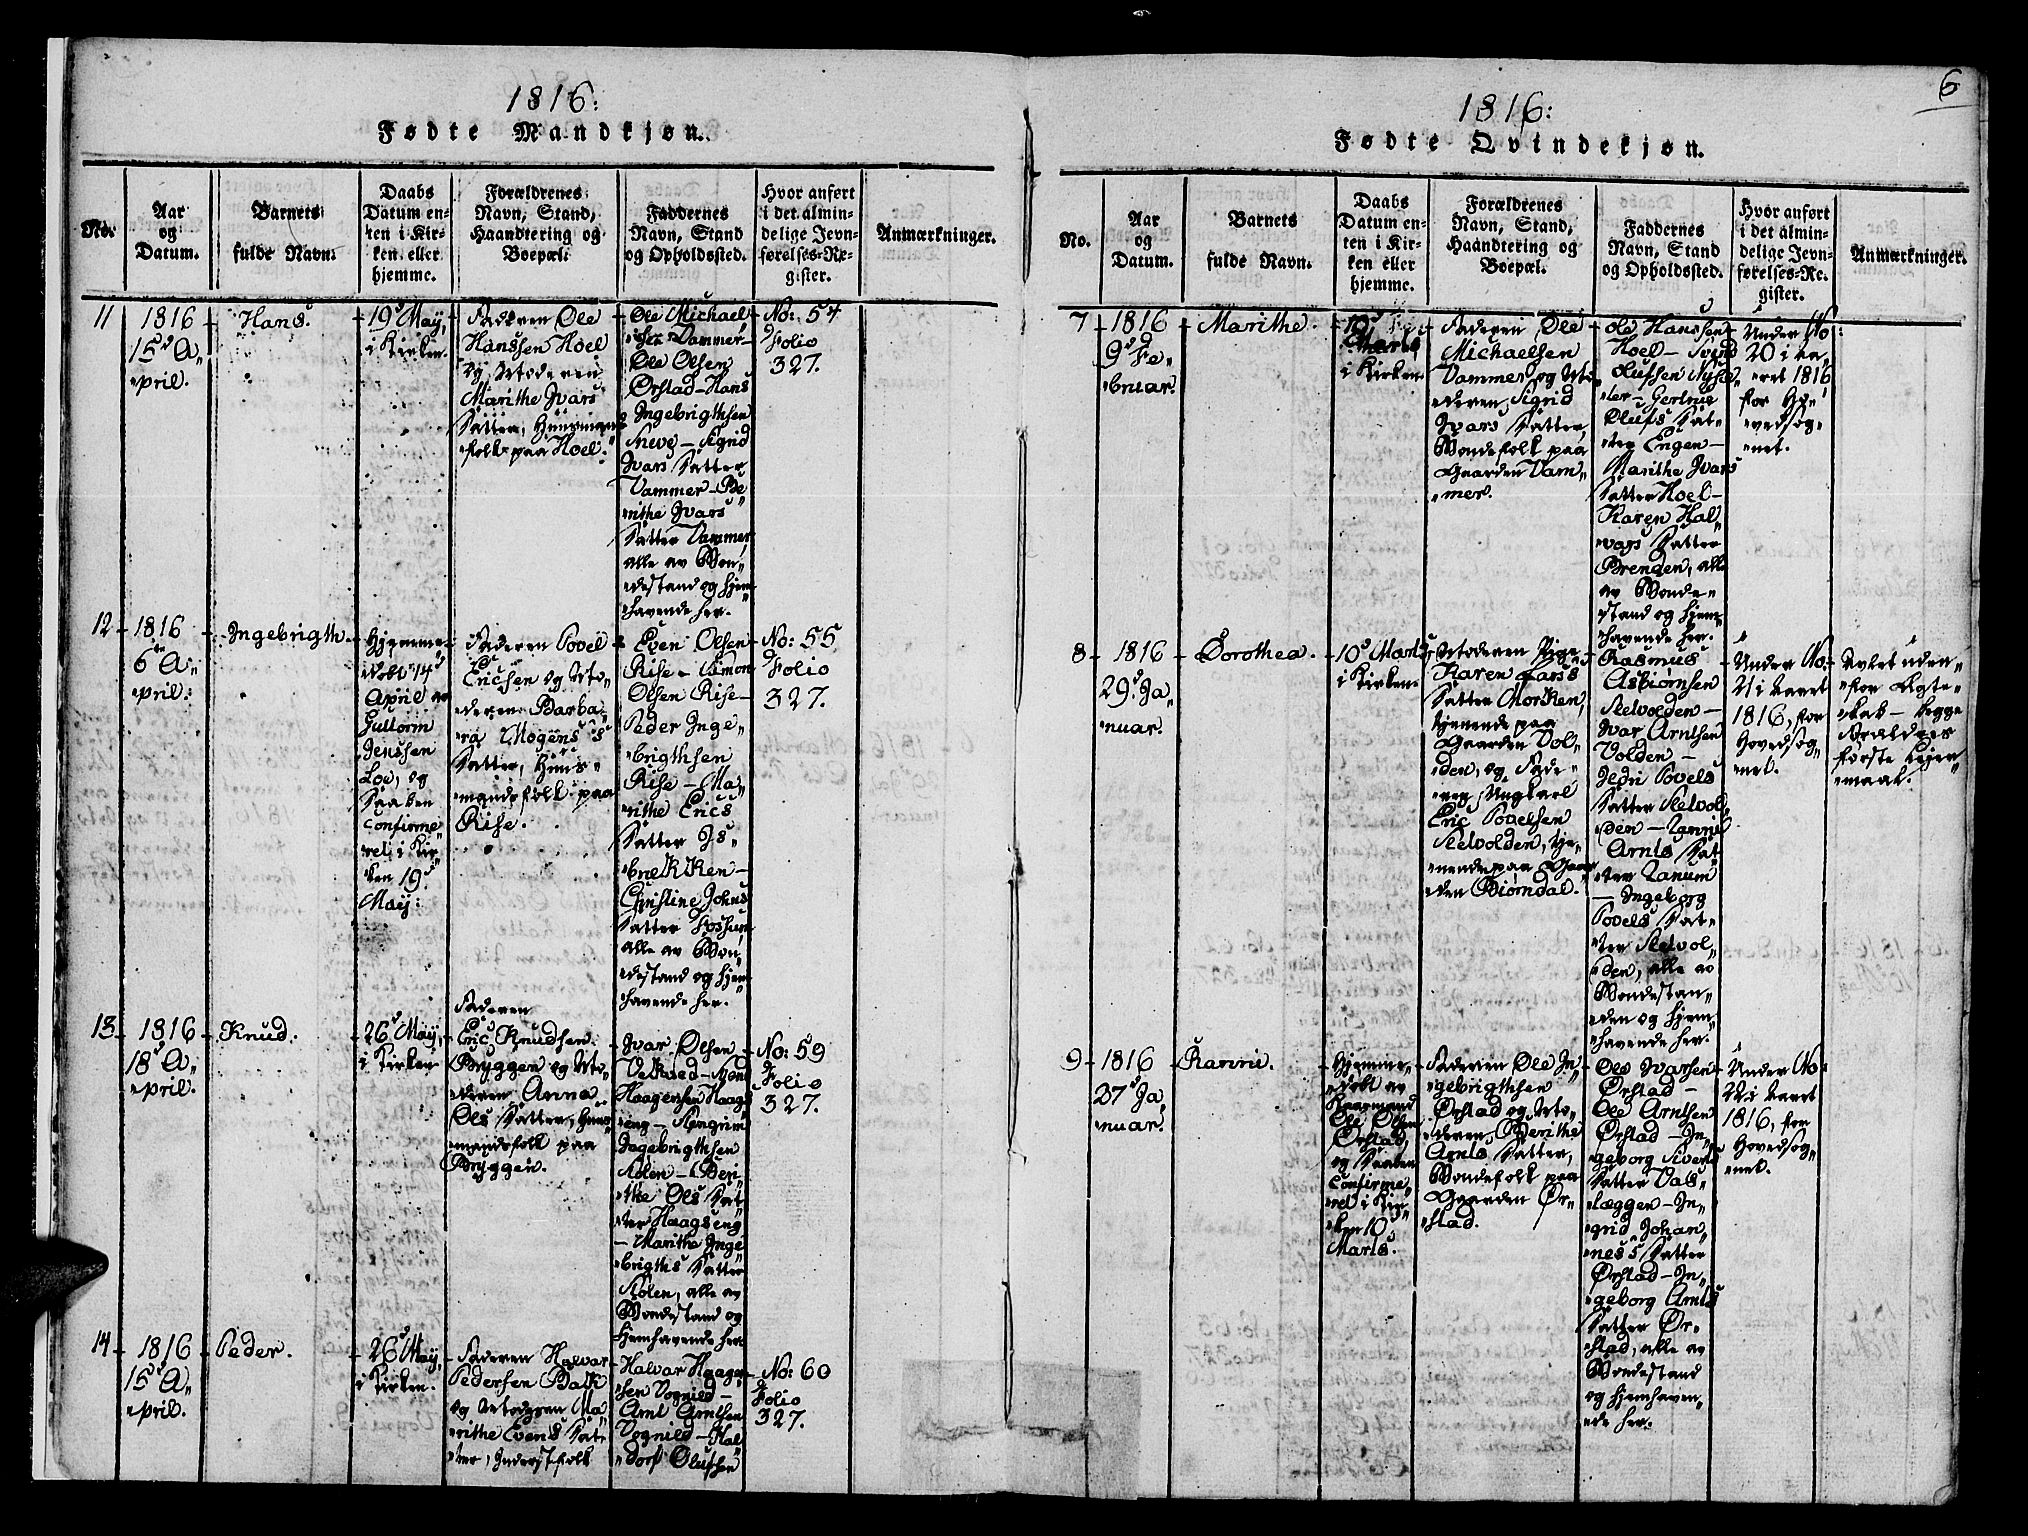 1816:
Fødte Mandkjøn.
No.
Aar
og
Datum.
Barnets
fulde Navn.
Daabs
Datum en-
ten i Kir-
ken eller
hjemme.
Forældrenes
Navn, Stand,
Haandtering og
Boepæl.
Faddernes
Navn, Stand
og Opholdssted.
Hvor anført
i det almin-
delige Jevn-
førelses-Re-
gister.
Anmærkninger.
11
1816
15d A„
„pril.
Hans.
19d May,
i Kirken.
Faderen Ole
Hanssen Hoel
og Moderen
Marithe Ivars
Datter, Huusmans
„folk paa Hoel.
Ole Michael
„sen Vammer –
Ole Olsen
Ørstad – Hans
Ingebrigthsen
Sneve – Sigrid
Ivars Datter
Vammer – Be„
„rithe Ivars
Datter Vammer
alle av Bon„
„destand og hjem„
„havende her.
No: 54
Folio
327.
12
1816
6te A„
„pril.
Ingebrigth.
Hjemme„
„døbt 14d
April av
Guttorm
Jenssen
Loe, og
Daaben
Confirme„
„ret i Kir„
„ken 19d
May.
Faderen Povel
Ericsen og Mo„
„deren Barba„
„ra Mogens
Datter, Huus„
„mandsfolk paa
Rise.
Even Olsen
Rise – Simon
Olsen Rise –
Peder Inge„
„brigthsen
Rise – Ma„
„rithe Erics
Datter Is„
„brekken –
Christine Johns
Datter Fossum
alle av Bon„
„destand og hjem„
„havende her.
No: 55
Folio
327.
13
1816
18d A„
„pril.
Knud.
26d May,
i Kirken
Faderen
Eric Knudsen
Bryggen og Mo„
„deren Anna
Ols Datter, Huus„
„mandsfolk paa
Bryggen.
Ivar Olsen
Haagensen Haags
„eng –
Ingebrigthsen
Aalen – Beri„
„the Ols Dat„
„ter Haagseng
– Marithe Inge„
„brigths Datter
Aalen, alle av
Bondestand og
hjemhavende her
No: 59
Folio
327.
14
1816
15d A„
„pril.
Peder.
26d May,
i Kirken.
Faderen Halvor
Pedersen Bakk
og Moderen Ma„
„rithe Evens Dat„
„ter, Inderstfolk
Halvor Haagen„
„sen Vognild –
Arnt Arntsen
Vognild – Hal„
„dorf Olufsen
No: 60
Folio
327.
6
1816:
Fødte Qvindekjøn.
No.
Aar
og
Datum.
Barnets
fulde Navn.
Daabs
Datum en-
ten i Kir-
ken eller
hjemme.
Forældrenes
Navn, Stand,
Haandtering og
Boepæl.
Faddernes
Navn, Stand
og Opholdssted.
Hvor anført
i det almin-
delige Jevn-
førelses-Re-
gister.
Anmærkninger.
7
1816
9d Fe„
„bruar.
Marithe.
10d
Marts
i Kirken.
Faderen Ole
Michaelsen
Vammer og Mo„
„deren Sigrid
Ivars Datter,
Bondefolk paa
Gaarden Vam„
„mer.
Ole Hanssen
Hoel – Svend
Olufsen Nysæ„
„ter – Gertrue
Olufs Dat„
„ter Engen –
Marithe Ivars
Datter Hoel –
Karen Hal„
„vors Datter
Brenden, alle
av Bonde„
„stand og hjem„
„havende her.
Under No:
20 i aa„
„ret 1816
for Ho„
„vedsog„
„net.
8
1816
29d Ja„
„nuar.
Dorothea.
10d Marts
i Kirken.
Moderen Pige
Karen Lars
Datter Morken,
tjenende paa
Gaarden Vol„
„den, og Fade„
„ren Ungkarl
Eric Povelsen
Stelvolden, tje„
„nende paa Gaar„
„den Biørndal.
Rasmus
Asbiørnsen
Stelvolden –
Ivar Arntsen
Volden –
Povels
Datter Stelvol„
„den –
Arnts Dat„
„ter Lanum
– Ingeborg
Povels Dat„
„ter Stelvol„
„den, alle av
Bondestan„
„den og hjem„
„havende her.
Under No
21 i aaret
1816, for
Hovedsog„
„net.
Avlet uden„
„for Ægte„
„skab – begge
Forældres
første Leier„
„maal.
9
1816
27d Ja„
„nuar.
Ranni.
Hjemme„
„døbt av
Gaarmand
Ole Olsen
Ørstad,
og Daaben
Confirme„
„ret i Kir„
„ken 10
Marts.
Faderen Ole In„
„gebrigthsen
Ørstad og Mo„
„deren Berithe
Arnts Datter,
Bondefolk paa
Gaarden Ør„
„stad.
Ole Ivarsen
Ørstad –
Ole Arntsen
Ørstad – In„
„geborg Siverts
Datter Vas„
„læggen – In„
„grid Johan„
„ness Datter
Ørstad – In„
„geborg Arnts
Datter Ør„
„stad, alle av
Bondestand
og hjemhaven„
„de her.
Under No:
22 i aaret
1816, for
Hovedsog„
„net.